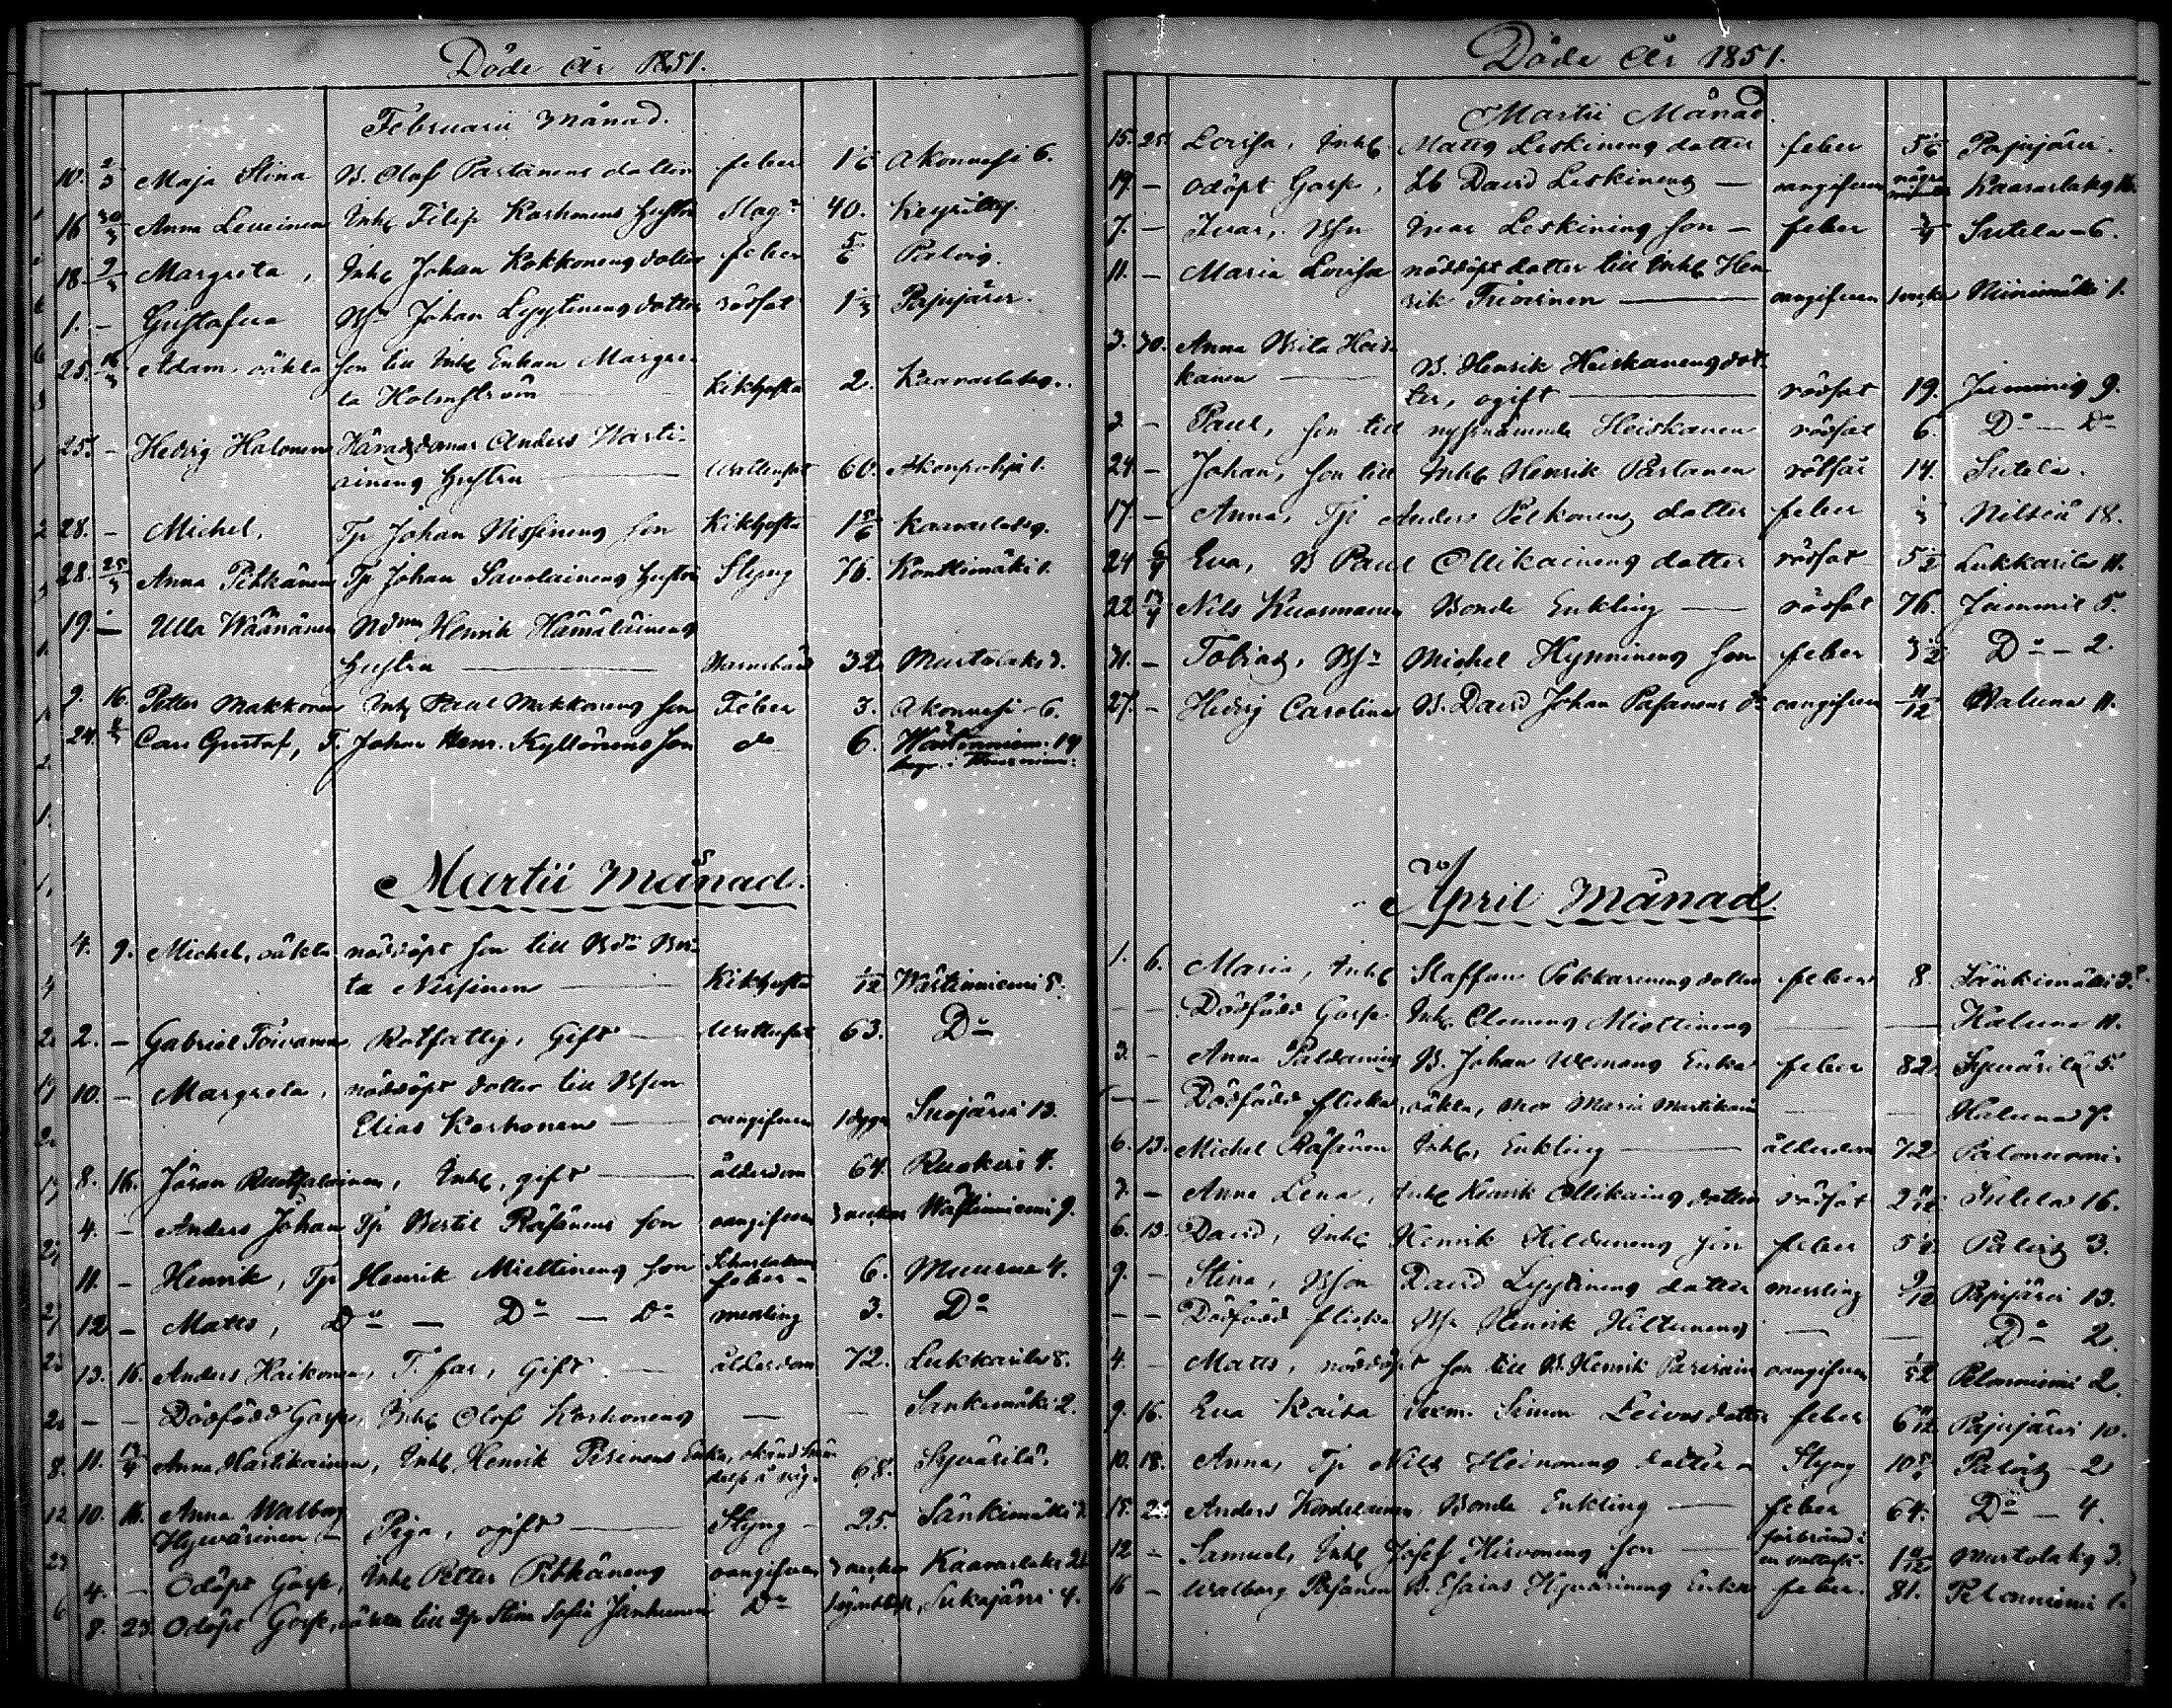 Döde År 1851.
Februarii Månad.
10. 2/3 Maja Stina B. Olof Partanens dotter feber 1 1/6 Akonvesi 6.
16 30/3 Anna Leveinen Inh. Filip Korhonens hustru Slag 40. Keyritty
18 9/3 Margreta, Inh. Johan Kokkonens dotter feber 5/6 Palois.
1. - Gustafva Bsn Johan Lyytinens dotter rödsot 1 1/3 Pajujärvi.
25. 16/3 Adam, oäkta son till Inh. Enkan Margre-
ta Holmström kikhosta 2. Kaaraslaks.
25. - Hedvig Halonen Häradsdomar Anders Marti-
kainens hustru Wattusot 60. Akonpohja 1.
28. - Michel, Tp Johan Nissinens son Kikhosta 1 5/6 Kaaraslaks.
28. 25/3 Anna Pitkänen Tp Johan Savolainens hustru Styng 76. Konttimäki 1.
19 - Ulla Wäänänen Ndmn Henrik Hämäläinens
hustru Barnsbörd 32 Murtolaks 3.
9. 16. Petter Makkonen Inh Paul Makkonens son Feber 3. Akonvesi - 6.
24. Carl Gustaf, T. Johan Henr. Kyllönens son do 6. 19
Martii Månad.
4. 9. Michel, oäkta nöddöpt son till Bdr Bri-
ta Nissinen Kikhosta 1/12 Wästinniemi 5.
2. - Gabriel Toivanen Rotfattig, Gift Wattusot 63. Do
10. - Margreta, nöddöpt dotter till Bson
Elias Korhonen oangifven 1 dygn Suojärvi 13.
8. 16. Jöran Ruotsalainen, Inh., gift ålderdom 64. Ruokois 4.
4. - Anders Johan Tp Bertil Räsänens son oangifven 3 veckor Wästinniemi 9.
11. - Henrik, Tp Henrik Miettinens son Scharlakans
feber - 6. Muuruvе 4.
12 - Matts, Do - Do - Do messling 3. Do
13. 16. Anders Haikonen, T. far, Gift ålderdom 72. Lukkarila 8.
- - Dödfödd Gosse, Inh Olof Korhonens - - Sänkimäki 2.
11. 13/4 Anna Martikainen, Inh. Henrik Pirinens Enka, 68. Syvärilä.
10. 16. Anna Walborg
Hyvärinen - Piga, ogift Styng - 25. Sänkimäki
4. - Odöpt Gosse, Inh Petter Pitkänens oangifven 3 veckor Kaaraslaks 21
8. 23. Odöpt Gosse, oäkta till Tp Stina Sofia Janhunen Do Sukajärvi 4.
Döde År 1851.
Martii Månad.
15. 25. Lovisa, Inh. Matts Leskinens dotter feber 5 1/6 Pajujärvi.
19. - Odöpt Gosse, Lb David Leskinens - oangifven några Kaaraslaks 16.
7. - Ivar, Bsn Ivar Leskinens son - feber 3/4 Sutela - 6.
11. - Maria Lovisa nöddöpt dotter till Inh. Hen-
rik Tuovinen oangifven 1 vecka Niinimäki 1.
3. 30. Anna Brita Heis-
kanen B. Henrik Heiskanens dot-
ter, ogift rödsot 19. Jumminis 9.
3 - Paul, son till nyssnämnde Heiskanen rödsot 6. Do - Do
24 - Johan, son till Inh. Henrik Partanen rödsot 14. Sutela.
17 - Anna, Tp Anders Pelkonens dotter feber Nilsiä 18.
24 6/4 Eva, B Paul Ollikainens dotter rödsot 5 1/2 Lukkarila 11.
22 13/4 Nils Kuosmanen Bonde Enkling rödsot 76. Jumminis 5.
31. - Tobias, Bsn Michel Hynninens son feber 3 1/2 Do - 2.
27. - Hedvig Carolina B. David Johan Pasanens dr oangifven 11/12 Haluna 11.
April Månad.
1. 6. Maria, Inh. Staffan Pekkarinens dotter feber 8. Sänkimäki 3.
- - Dödfödd Gosse Inh. Clemens Miettinens - - Haluna 11.
3. - Anna Paldanius B. Johan Ulmanens Enka feber 82. Syvärilä 5.
- - Dödfödd flicka, oäkta, mor Maria Martikain Haluna 7.
6. 13. Michel Räsänen Inh., Enkling ålderdom 72 Palonurmi.
3. - Anna Lena, Inh. Henrik Ollikainens dotter rödsot 2 11/12 Sutela 16.
6. 13. David, Inh. Henrik Hildunens son feber 5 1/2 Palois 3.
9. - Stina, Bson David Lyytinens dotter messling 9/12 Pajujärvi 13.
- - Dödfödd flicka Bsn Henrik Hiltunens - - Do 2.
4. Matts, nöddöpt son till B. Henrik oangifven 1/52 Palonurmi 2.
9. 16. Eva Kaisa Sexm. Simon Leivos dotter feber 6 11/12 Pajujärvi 10.
10. 18. Anna, Tp Nils Heinonens dotter Styng 10 5/6 Palois - 2
15. 2 Anders Kondelainen Bonde Enkling feber 64. Do - 4.
12 - Samuel, Inh. Josef Hirvonens son förbränd i
1 9/12 Murtolaks 3.
16 - Walborg Pasanen B. Esaias Hyvärinens Enka feber. 81. Palonurmi 1.